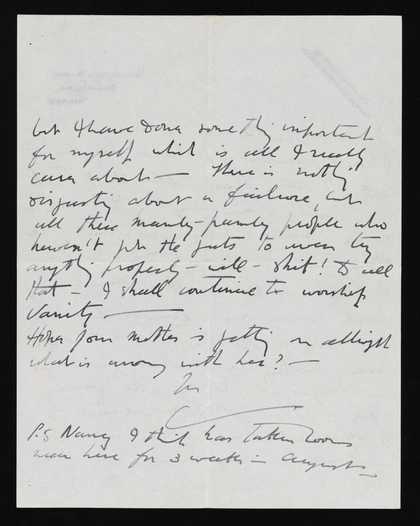 but I have done something important
for myself which is all I really
care about — there is nothing
disgusting about a failure, but
all these mamby-pamby people who
haven't got the guts to even try
anything properly — well — shit! to all
that — I shall continue to worship
Vanity —
Hope your mother is getting on allright
what is wrong with her? —
P.S Nancy I think has taken rooms
near here for 3 weeks in August —